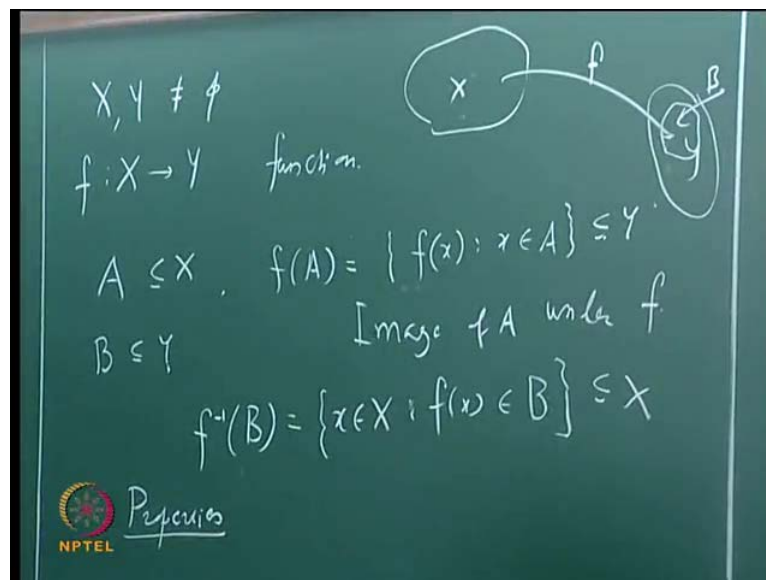 X, Y ≠ ϕ
X f B
y
f : X → Y function.
A ⊆ X, f(A) = { f(x) : x ∈ A } ⊆ Y
Image of A under f.
B ⊆ Y
f⁻¹(B) = { x ∈ X : f(x) ∈ B } ⊆ X
Properies
NPTEL